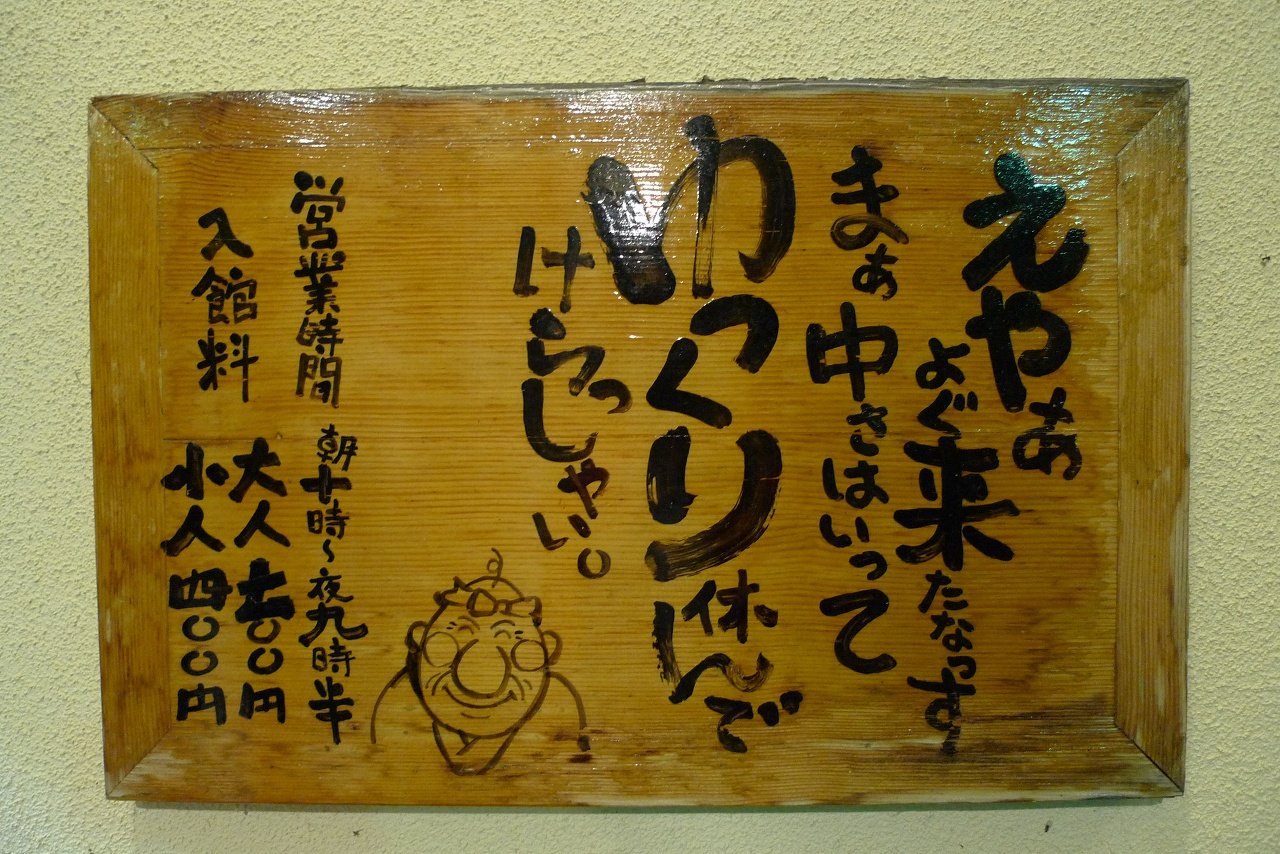 えやぁ
よぐ来たなっす
まぁ中さはいって
ゆっくり休んで
けらっしゃい。
営業時間 朝十時~夜九時半
入館料 大人 七〇〇円
小人 四〇〇円